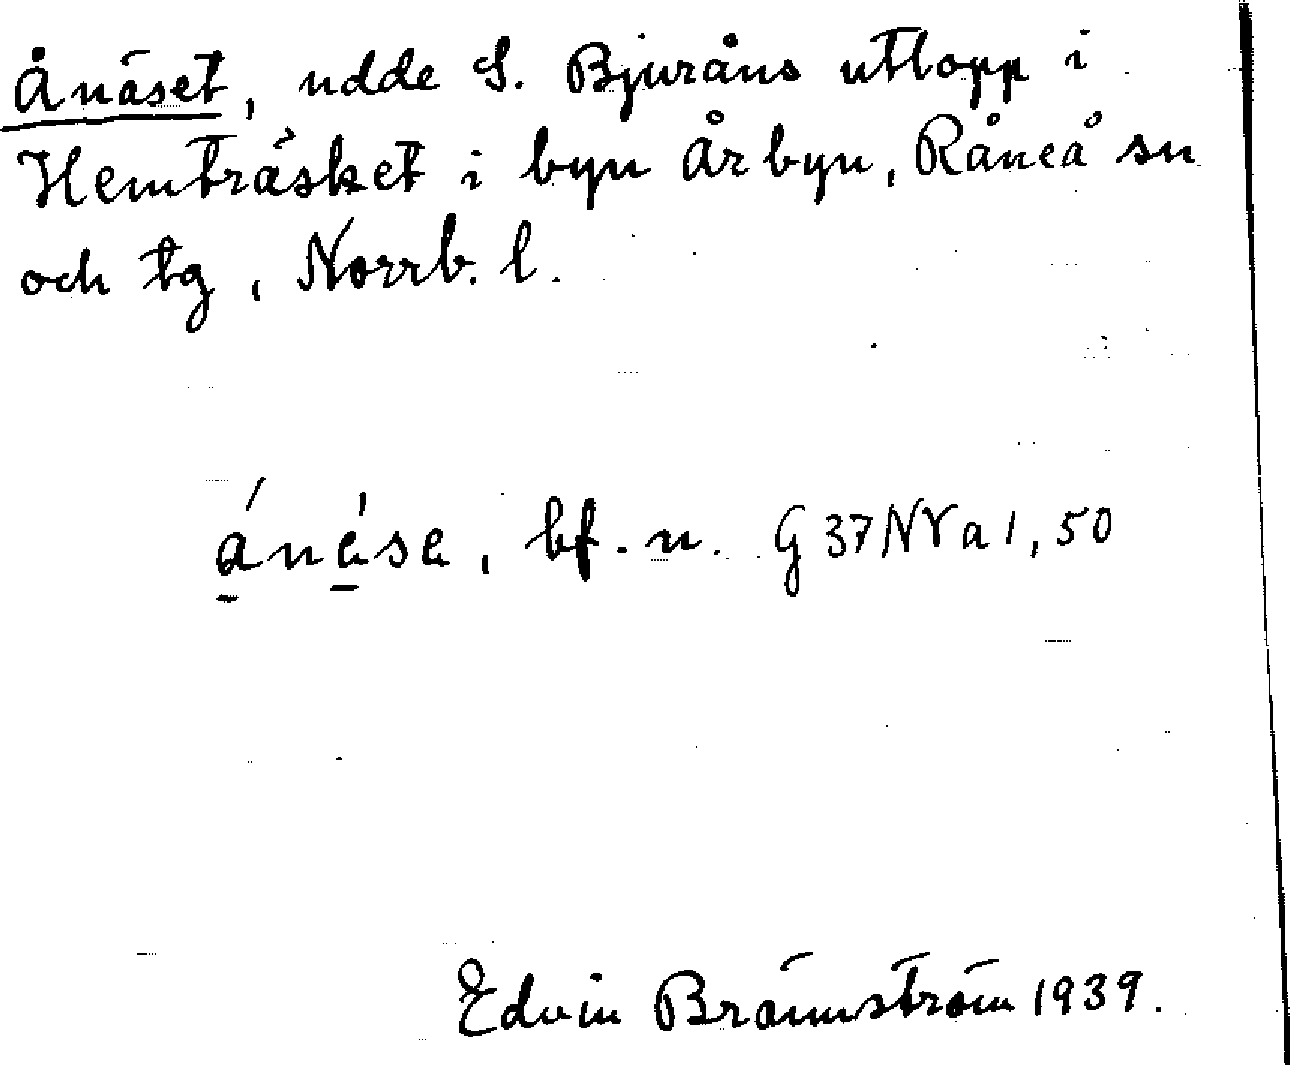 Ånäset, udde S. Bjuråns utlopp i
Hemträsket i byn Årbyn, Råneå sn
och tg, Norrb. l.
ánáse, bf. n. G37NVa1,50
Edvin Brännström 1939.